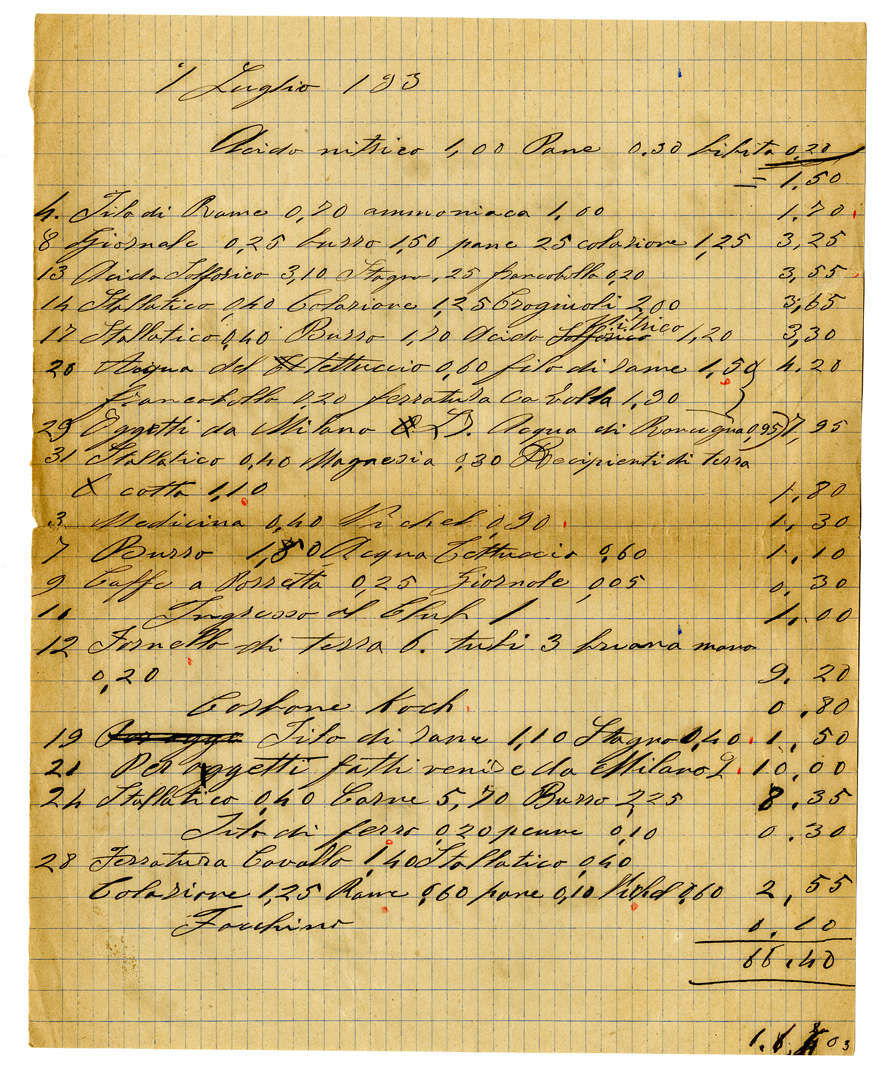 1 Luglio 1893
Acido nitrico 1,00 Pane 0.30 bibita 0,20
= 1.50
4. Filo di Rame 0,70 ammoniaca 1,00 1,70
8 Giornale 0,25 burro 1,50 pane 25 colazione 1,25 3,25
13 Acido Solforico 3,10 Stagno ,25 francobollo 0,20 3,55
14 Stallatico 0,40 Colazione 1,25 Crogiuoli 2,00 3,65
17 Stallatico 0,40 Burro 1,70 Acido nitrico 1,20 3,30
20 Acqua del Tettuccio 0,60 filo di rame 1,50 4.20
francobollo 0,20 ferratura cavalla 1,90
29 Oggetti da Milano Acqua di 0,95 7,95
31 Stallatico 0,40 Magnesia 0,30 Recipienti di terra
cotta 1,10 1,80
3 Medicina 0,40 Nichel 0,90 1,30
7 Burro Acqua Tettuccio 0,60 1.10
9 Caffe a Porretta 0,25 Giornale 0,05 0,30
11 Ingresso al Club 1 1.00
12 Fornello di terra 6. tubi 3 mano
0,20 9.20
Carbone Koch 0.80
19 Filo di rame 1,10 Stagno 0,40 1.50
21 Per oggetti fatti venire da Milano 10,00
24 Stallatico 0,40 Carne 5,70 Burro 2,25 8.35
Filo di ferro 0,20 penne 0,10 0.30
28 Ferratura Cavallo 1,40 Stallatico 0,40
Colazione 1,25 Rame 0,60 pane 0,10 Nichel 0,60 2,55
Facchino 0.10
66.40